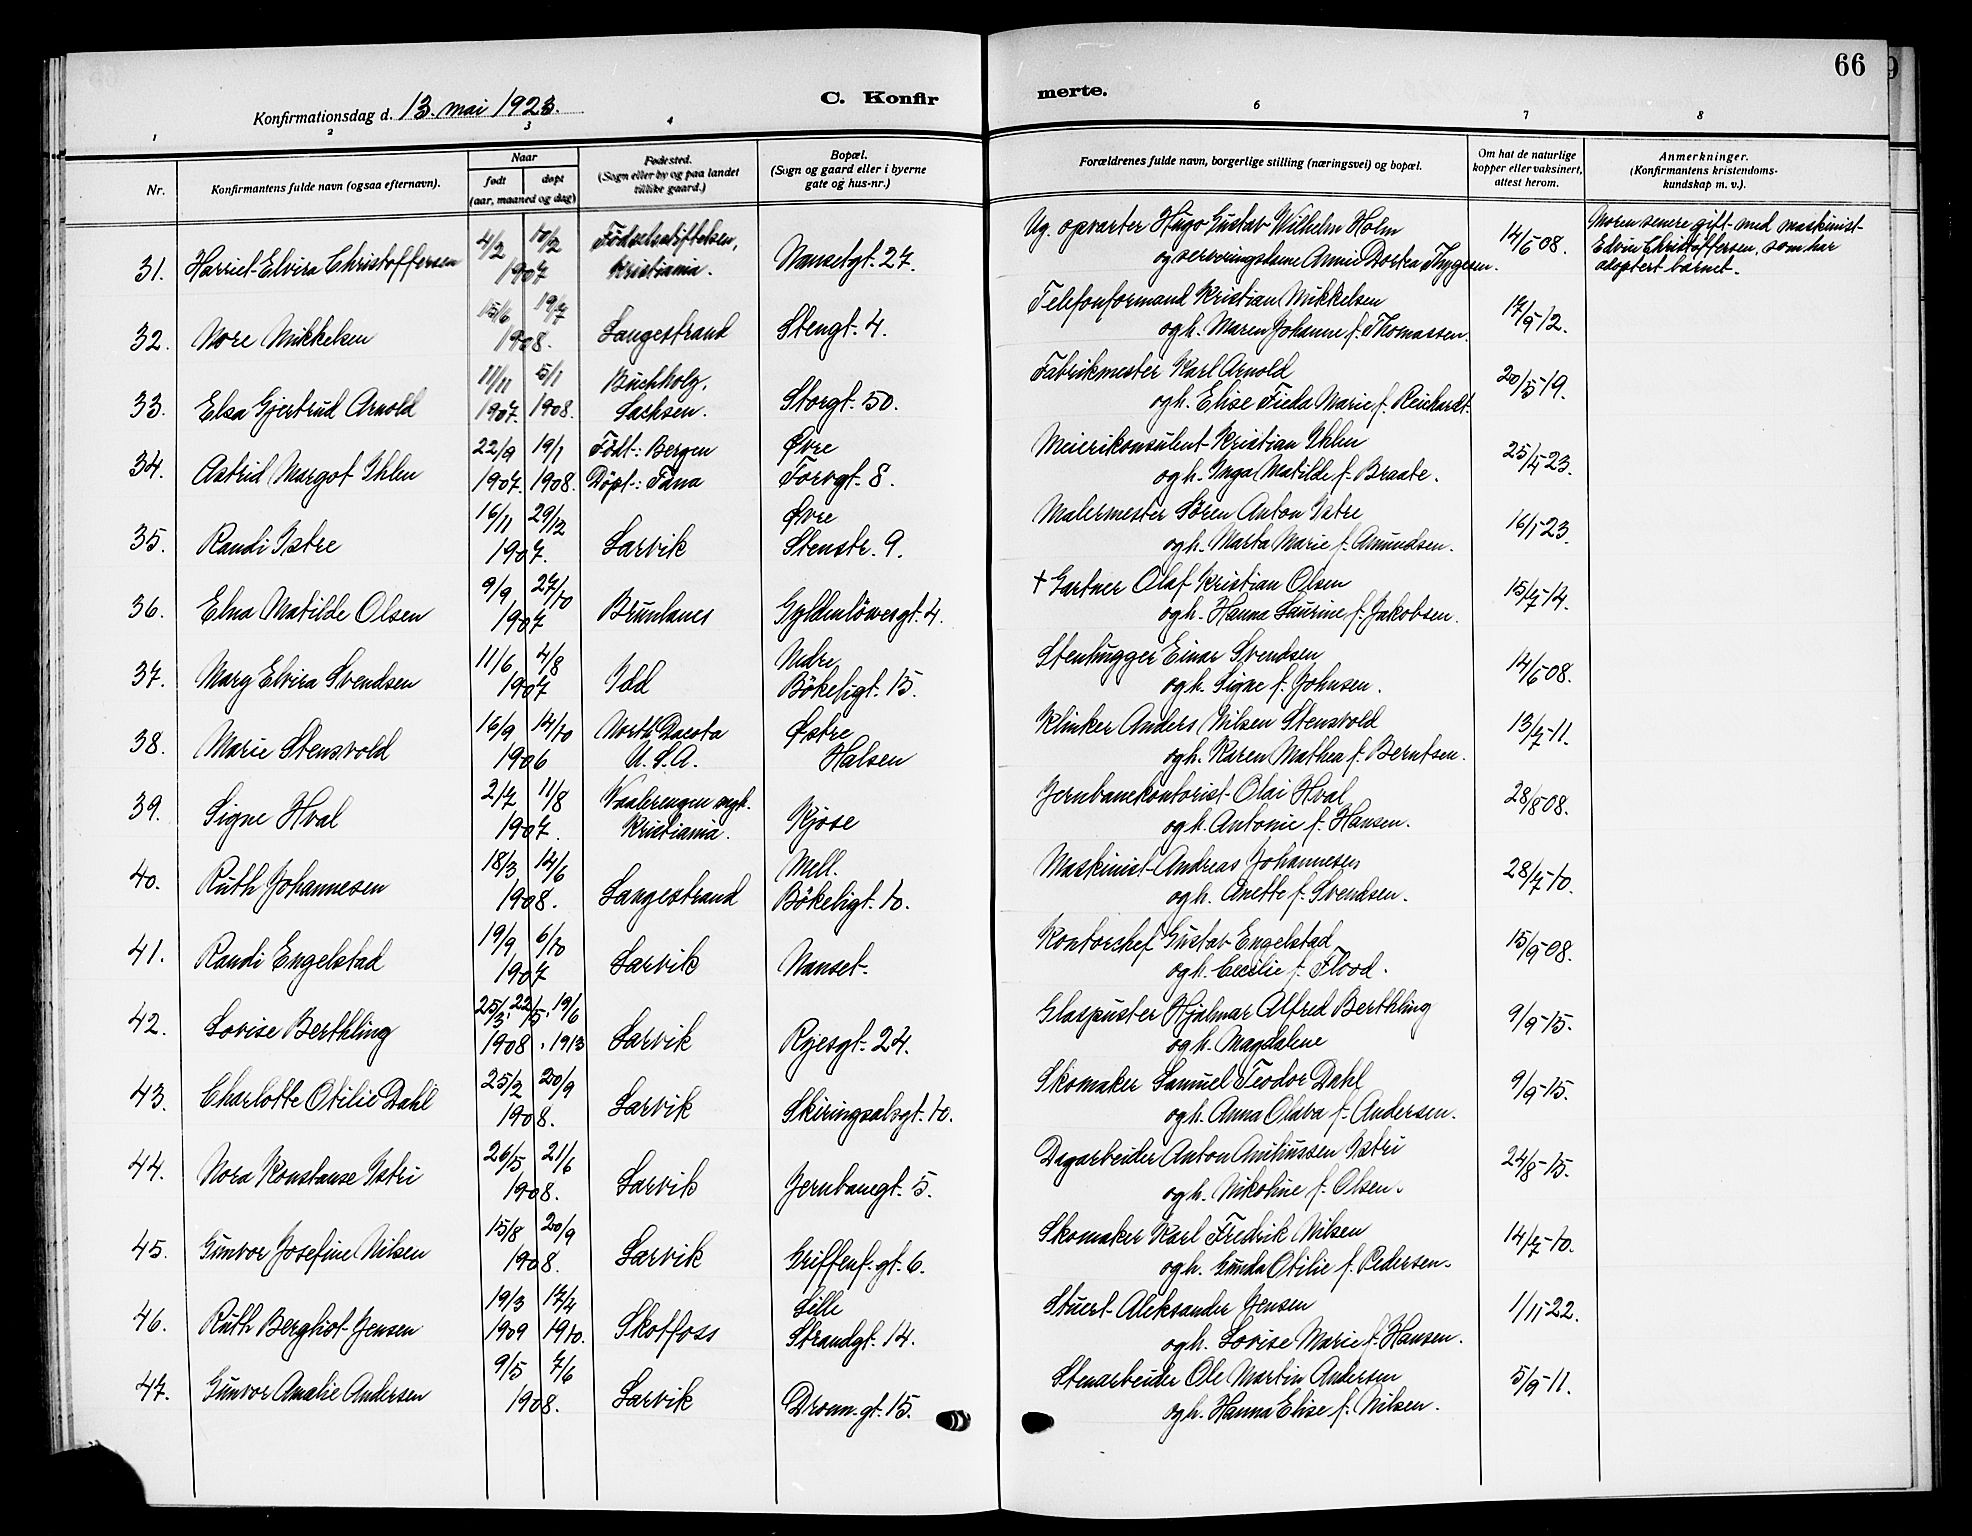 66
Konfirmationsdag d. 13. mai 1923.
C. Konfir
merte.
1 2 3 4 6 7 8
Nr.
Konfirmantens fulde navn (ogsaa efternavn).
Naar
født
døpt
(aar, maaned og dag)
Fødested.
(Sogn eller by og paa landet
tillike gaard.)
Bopæl.
(Sogn og gaard eller i byerne
gate og hus-nr.)
Forældrenes fulde navn, borgerlige stilling (næringsvei) og bopæl.
Om hat de naturlige
kopper eller vaksinert,
attest herom.
Anmerkninger.
(Konfirmantens kristendoms-
kundskap m. v.).
31. Harriet Elvira Christoffersen 4/2 10/2 1907 Fødselsstiftelsen, Kristiania. Nansetgt. 27.
Ug. opvarter Hugo Gustav Wilhelm Holm
og serveringsdame Annie Dortea Thygesen. 14/6 08.
Moren senere gift med maskinist
Edvin Christoffersen, som har
adoptert barnet.
32. Nore Mikkelsen 15/6 19/7 1908. Langestrand Stengt. 4.
Telefonformand Kristian Mikkelsen
og h. Maren Johanne f. Thomassen. 17/9 12.
33. Elsa Gjertrud Arnold 11/11 1907. 5/1 1908. Buchholz, Sachsen. Storgt. 50.
Fabrikmester Karl Arnold
og h. Elise Frieda Marie f. Reichardt. 20/5 19.
34. Astrid Margot Ihlen 22/9 1907. 19/1 1908. Født: Bergen Døpt: Fana Øvre Torvgt. 8.
Meierikonsulent Kristian Ihlen
og h. Inga Matilde f. Braate. 25/4 23.
35. Randi Istre 16/11 29/12 1907. Larvik Øvre Stenstr. 9.
Malermester Søren Anton Istre
og h. Marta Marie f. Amundsen. 16/1 23.
36. Elna Matilde Olsen 9/9 27/10 1907 Brunlanes Gyldenløvesgt. 4.
† Gartner Olaf Kristian Olsen
og h. Hanna Laurine f. Jakobsen. 15/7 14.
37. Mary Elvira Svendsen 11/6 4/8 1907 Idd Nedre Bökeligt. 15.
Stenhugger Einar Svendsen
og h. Signe f. Johnsen. 14/6 08.
38. Marie Stensvold 16/9 14/10 1906 North Dacota U.S.A. Østre Halsen
Klinker Anders Nilsen Stensvold
og h. Karen Mathea f. Berntsen. 13/7 11.
39. Signe Hval 2/7 11/8 1907. Vaalerengen sogn. Kristiania. Kjose
Jernbanekontorist Olai Hval
og h. Antonie f. Hansen. 28/8 08.
40. Ruth Johannesen 18/3 14/6 1908. Langestrand Mell. Bökeligt. 10.
Maskinist Andreas Johannesen
og h. Anette f. Svendsen. 28/7 10.
41. Randi Engelstad 19/9 6/10 1907 Larvik Nanset.
Kontorchef Gustav Engelstad
og h. Cecilie f. Flood. 15/9 08.
42. Lovise Berthling 25/3, 22/5, 19/6 1908, 1913 Larvik Ryesgt. 24.
Glaspuster Hjalmar Alfred Berthling
og h. Magdalene 9/9 15.
43. Charlotte Otilie Dahl 25/2 20/9 1908. Larvik Skiringsalsgt. 10.
Skomaker Samuel Teodor Dahl
og h. Anna Olava f. Andersen. 9/9 15.
44. Nora Konstanse Istri 26/5 21/6 1908. Larvik Jernbanegt. 5.
Dagarbeider Anton Anthussen Istri
og h. Nikoline f. Olsen. 24/8 15.
45. Gunvor Josefine Nilsen 15/8 20/9 1908. Larvik Griffenf. gt. 6.
Skomaker Karl Fredrik Nilsen
og h. Gunda Otilie f. Pedersen. 14/7 10.
46. Ruth Bergliot Jensen 19/3 1909 17/4 1910. Skotfoss Lille Strandgt. 14.
Stuert Aleksander Jensen
og h. Lovise Marie f. Hansen. 1/11 22.
47. Gunvor Amalie Andersen 9/5 7/6 1908. Larvik Dronn. gt. 15.
Stenarbeider Ole Martin Andersen
og h. Hanna Elise f. Nilsen. 5/9 11.